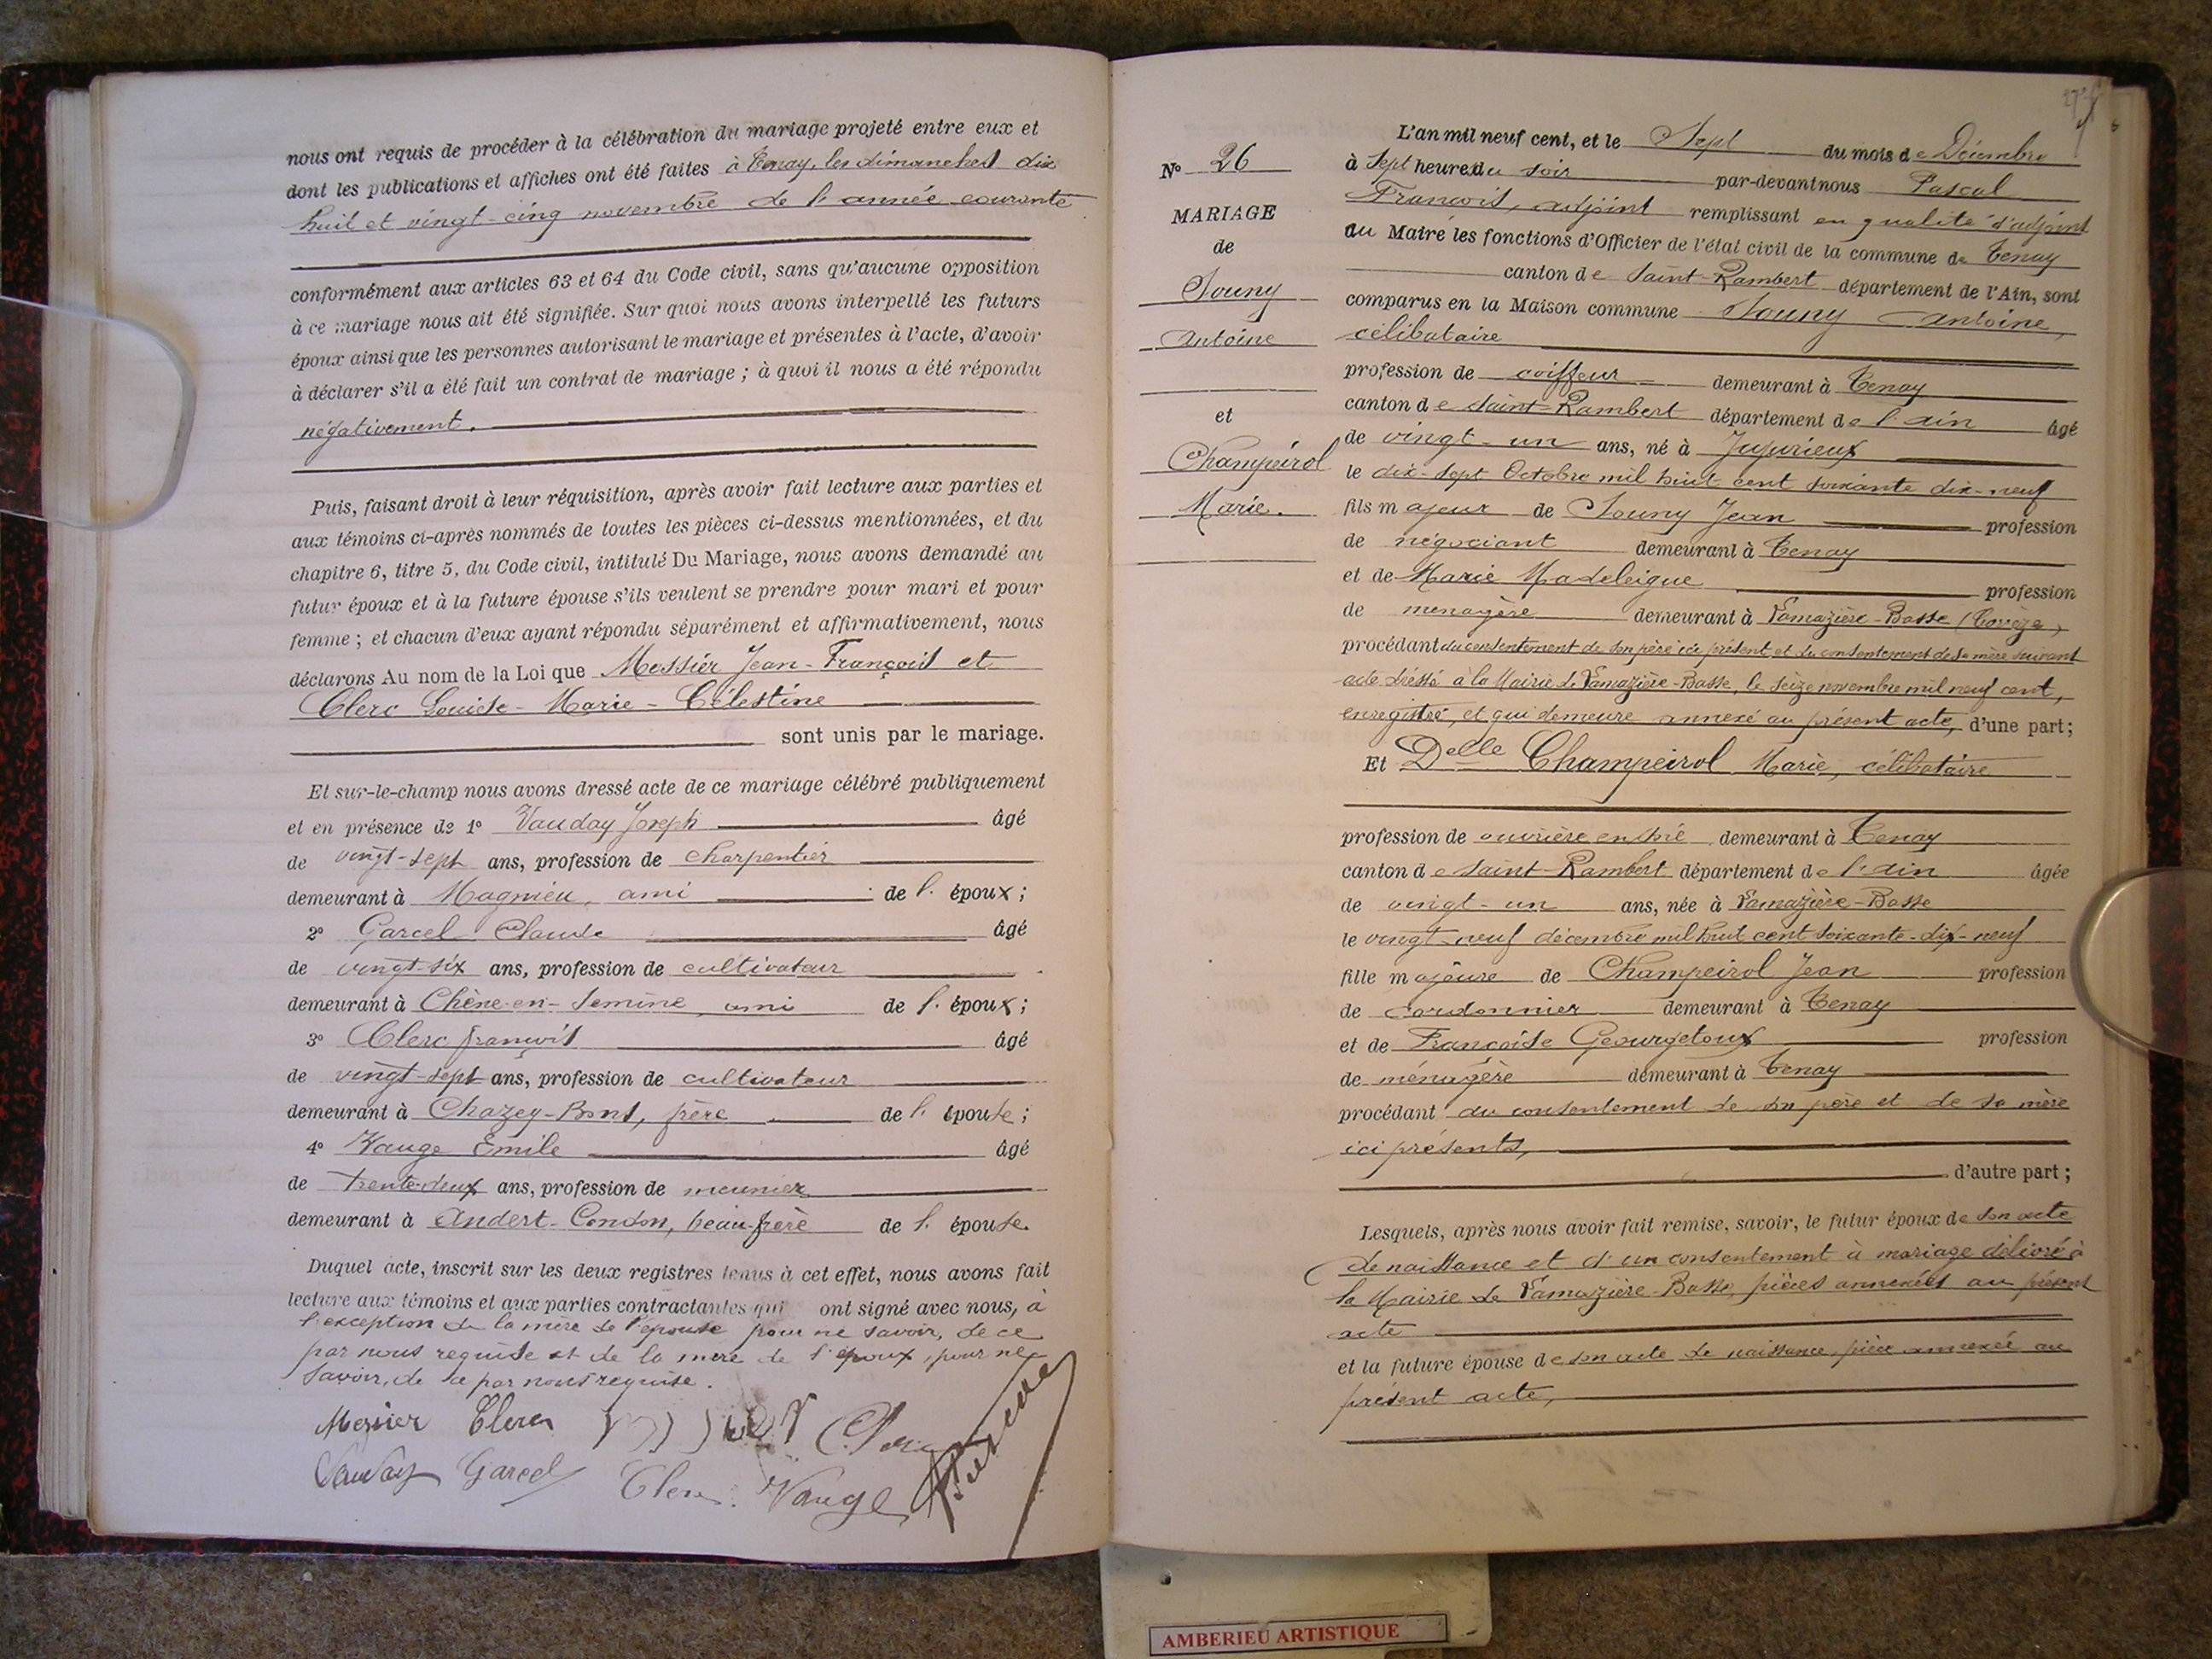 nous ont requis de procéder à la célébration du mariage projeté entre eux et
dont les publications et affiches ont été faites à Tenay, les dimanches dix
huit et vingt-cinq novembre de l'année courante
conformément aux articles 63 et 64 du Code civil, sans qu'aucune opposition
à ce mariage nous ait été signifiée. Sur quoi nous avons interpellé les futurs
époux ainsi que les personnes autorisant le mariage et présentes à l'acte, d'avoir
à déclarer s'il a été fait un contrat de mariage ; à quoi il nous a été répondu
négativement.
Puis, faisant droit à leur réquisition, après avoir fait lecture aux parties et
aux témoins ci-après nommés de toutes les pièces ci-dessus mentionnées, et du
chapitre 6, titre 5, du Code civil, intitulé Du Mariage, nous avons demandé au
futur époux et à la future épouse s'ils veulent se prendre pour mari et pour
femme ; et chacun d'eux ayant répondu séparément et affirmativement, nous
déclarons Au nom de la Loi que Messier Jean-François et
Clerc Louise-Marie-Célestine
sont unis par le mariage.
Et sur-le-champ nous avons dressé acte de ce mariage célébré publiquement
et en présence de 1° Vauday Joseph âgé
de vingt-sept ans, profession de charpentier
demeurant à Magnieu, ami de l' époux ;
2° Garcel Claude âgé
de vingt-six ans, profession de cultivateur
demeurant à Chêne-en-Semine, ami de l' époux ;
3° Clerc françois âgé
de vingt-sept ans, profession de cultivateur
demeurant à Chazey-Bons, frère de l' épouse ;
4° Vauge Emile âgé
de trente-deux ans, profession de meunier
demeurant à Andert-Condon, beau-frère de l' épouse.
Duquel acte, inscrit sur les deux registres tenus à cet effet, nous avons fait
lecture aux témoins et aux parties contractantes qui ont signé avec nous, à
l'exception de la mère de l'épouse pour ne savoir, de ce
par nous requise et de la mère de l'époux, pour ne
savoir, de ce par nous requise.
Messier Clerc
Vauday Garcel Clerc Vauge
N° 26
MARIAGE
de
Souny
Antoine
et
Champeirol
Marie.
L'an mil neuf cent, et le Sept du mois de Décembre
à Sept heures du soir par-devant nous Pascal
François, adjoint remplissant en qualité d'adjoint
au Maire les fonctions d'Officier de l'état civil de la commune de Tenay
canton de Saint-Rambert département de l'Ain, sont
comparus en la Maison commune Souny Antoine,
célibataire
profession de coiffeur demeurant à Tenay
canton de Saint-Rambert département de l'Ain âgé
de vingt-un ans, né à Jujurieux
le dix-sept Octobre mil huit cent soixante dix-neuf
fils majeur de Souny Jean profession
de négociant demeurant à Tenay
et de Marie Madeleigue profession
de ménagère demeurant à Lamazière-Basse (Corrèze)
procédant du consentement de son père ici présent et du consentement de sa mère suivant
acte dressé à la Mairie de Lamazière-Basse, le seize novembre mil neuf cent,
enregistré, et qui demeure annexé au présent acte, d'une part ;
Et Delle Champeirol Marie, célibataire
profession de ouvrière en soie demeurant à Tenay
canton de Saint-Rambert département de l'Ain âgée
de vingt-un ans, née à Lamazière-Basse
le vingt-neuf décembre mil huit cent soixante-dix-neuf
fille majeure de Champeirol Jean profession
de cordonnier demeurant à Tenay
et de Françoise Georgetoux profession
de ménagère demeurant à Tenay
procédant du consentement de son père et de sa mère
ici présents,
d'autre part ;
Lesquels, après nous avoir fait remise, savoir, le futur époux de son acte
de naissance et d'un consentement à mariage délivré à
la Mairie de Lamazière-Basse, pièces annexées au présent
acte
et la future épouse de son acte de naissance, pièce annexée au
présent acte,
AMBERIEU ARTISTIQUE